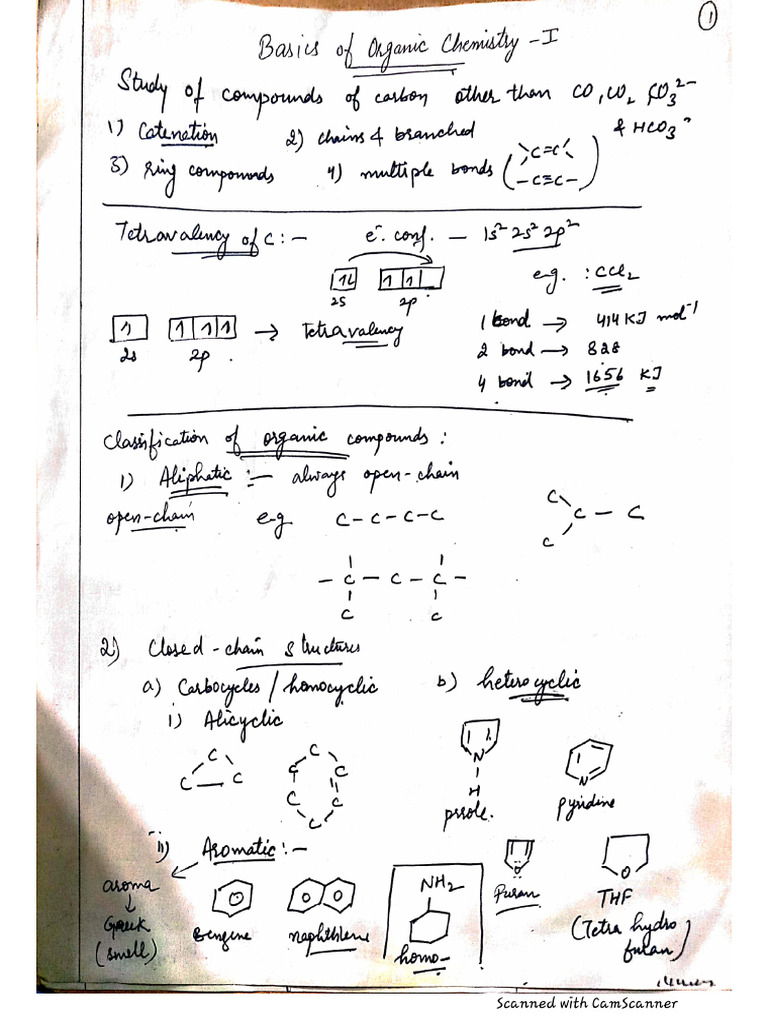 1
Basics of Organic Chemistry - I
Study of compounds of carbon other than CO, CO2, CO3²⁻
& HCO3⁻
1) Catenation 2) chains & branched
3) ring compounds 4) multiple bonds ( C=C
-C≡C- )
Tetravalency of C :- e⁻ conf. - 1s² 2s² 2p²
e.g. : CCl2
2s 2p
1 bond → 414 KJ mol⁻¹
→ Tetravalency
2s 2p .
2 bond → 828
4 bond → 1656 KJ
Classification of organic compounds :
1) Aliphatic :- always open-chain
open-chain e.g C-C-C-C
C
C - C
C
- C - C - C -
C C
2) Closed-chain structures
a) Carbocycles / homocyclic b) heterocyclic
i) Alicyclic
C
C C
C
C C
C C
C
N
H
prrole.
N
pyridine
ii) Aromatic :-
aroma
↓
Greek
(smell)
Benzene
naphthlene
NH2
homo-
O
Furan
O
THF
(Tetra hydro
furan)
Scanned with CamScanner